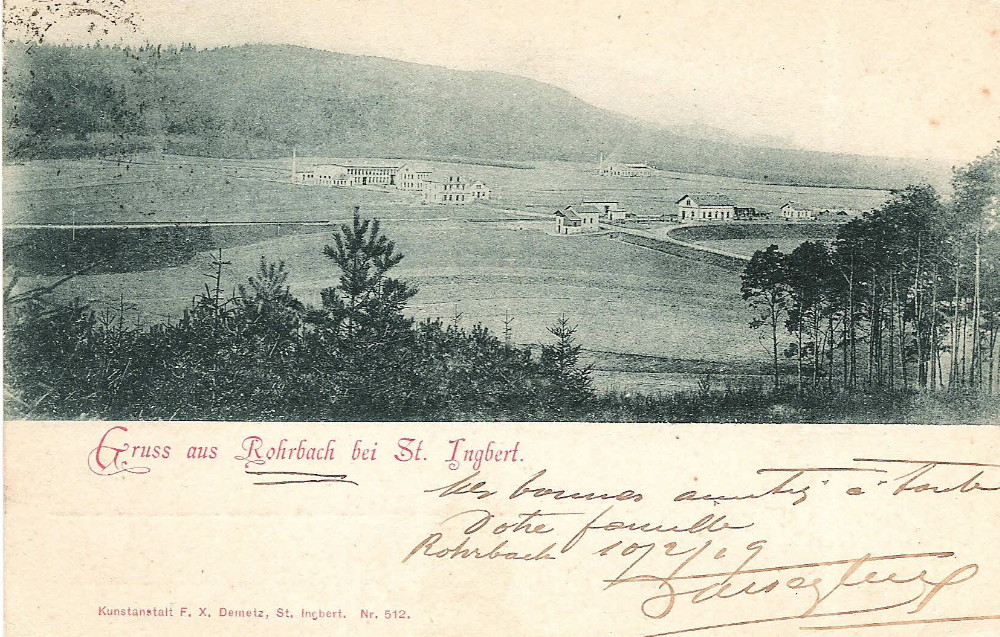 Gruss aus Rohrbach bei St. Ingbert.
Mes bonnes amitiés à toute
Votre famille
Rohrbach 10/2/09
Kunstanstalt F. X. Demetz, St. Ingbert. Nr. 512.